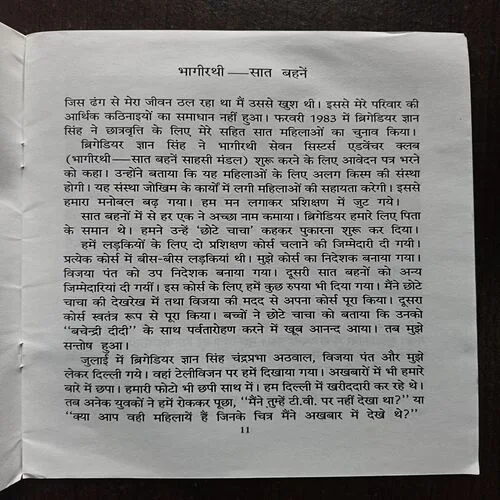 भागीरथी—सात बहनें
जिस ढंग से मेरा जीवन ढल रहा था मैं उससे खुश थी। इससे मेरे परिवार की
आर्थिक कठिनाइयों का समाधान नहीं हुआ। फरवरी 1983 में ब्रिगेडियर ज्ञान
सिंह ने छात्रवृत्ति के लिए मेरे सहित सात महिलाओं का चुनाव किया।
ब्रिगेडियर ज्ञान सिंह ने भागीरथी सेवन सिस्टर्स एडवेंचर क्लब
(भागीरथी—सात बहनें साहसी मंडल) शुरू करने के लिए आवेदन पत्र भरने
को कहा। उन्होंने बताया कि यह महिलाओं के लिए अलग किस्म की संस्था
होगी। यह संस्था जोखिम के कार्यों में लगी महिलाओं की सहायता करेगी। इससे
हमारा मनोबल बढ़ गया। हम मन लगाकर प्रशिक्षण में जुट गये।
सात बहनों में से हर एक ने अच्छा नाम कमाया। ब्रिगेडियर हमारे लिए पिता
के समान थे। हमने उन्हें ‘छोटे चाचा’ कहकर पुकारना शुरू कर दिया।
हमें लड़कियों के लिए दो प्रशिक्षण कोर्स चलाने की जिम्मेदारी दी गयी।
प्रत्येक कोर्स में बीस-बीस लड़कियां थी। मुझे कोर्स का निदेशक बनाया गया।
विजया पंत को उप निदेशक बनाया गया। दूसरी सात बहनों को अन्य
जिम्मेदारियां दी गयीं। इस कोर्स के लिए हमें कुछ रुपया भी दिया गया। मैंने छोटे
चाचा की देखरेख में तथा विजया की मदद से अपना कोर्स पूरा किया। दूसरा
कोर्स स्वतंत्र रूप से पूरा किया। बच्चों ने छोटे चाचा को बताया कि उनको
‘‘बचेन्द्री दीदी’’ के साथ पर्वतारोहण करने में खूब आनन्द आया। तब मुझे
सन्तोष हुआ।
जुलाई में ब्रिगेडियर ज्ञान सिंह चंद्रप्रभा अठवाल, विजया पंत और मुझे
लेकर दिल्ली गये। वहां टेलीविजन पर हमें दिखाया गया। अखबारों में भी हमारे
बारे में छपा। हमारी फोटो भी छपी साथ में। हम दिल्ली में खरीददारी कर रहे थे।
तब अनेक युवकों ने हमें रोककर पूछा, ‘‘मैंने तुम्हें टी.वी. पर नहीं देखा था?’’ या
‘‘क्या आप वही महिलायें हैं जिनके चित्र मैंने अखबार में देखे थे?’’
11